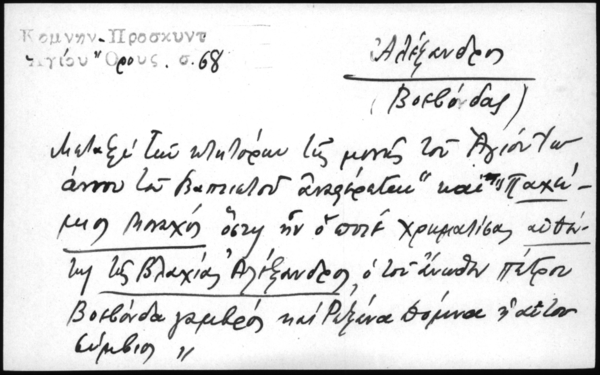 Κομνην. Προσκυντ
Ἁγίου Ὄρους. σ. 68
Ἀλέξανδρος
(Βοεβόνδας)
Μεταξὺ τῶν κτητόρων τῆς μονῆς τοῦ Ἁγίου Ἰω
άννου τοῦ Βαπτιστοῦ ἀναφέρεται " καὶ "Παχώ-
μιος Μοναχός ὅστις ἦν ὁ ποτὲ χρηματίσας αὐθέν-
της τῆς Βλαχίας Ἀλέξανδρος, ὁ τοῦ ἄνωθεν Πέτρου
Βοεβόνδα γαμβρός καὶ Ρωξάνα Δόμνα ἡ αὐτοῦ
σύμβιος "